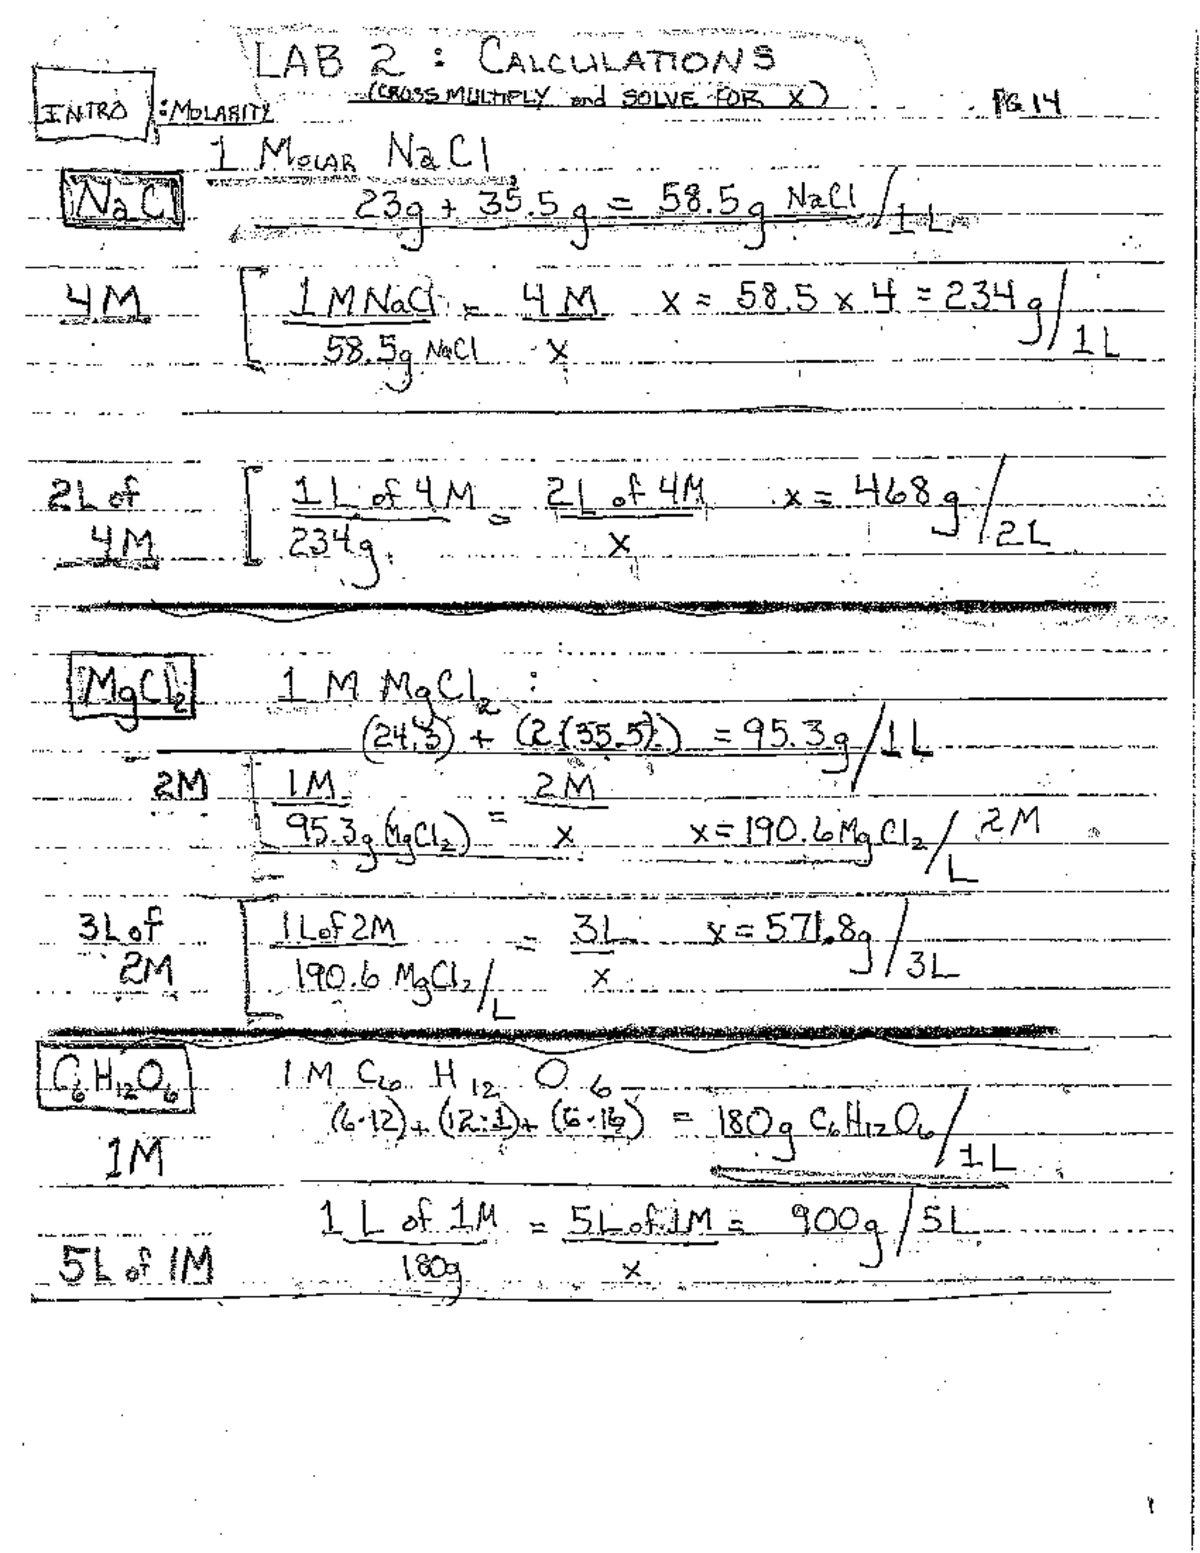 LAB 2 : CALCULATIONS
(CROSS MULTIPLY and SOLVE FOR X)
INTRO : MOLARITY
PG 14
1 MOLAR NaCl
NaCl
23g + 35.5g = 58.5g NaCl / 1L
4M
1 M NaCl / 58.5g NaCl = 4 M / x x = 58.5 x 4 = 234g / 1L
2L of 4M
1 L of 4M / 234g = 2L of 4M / x x = 468g / 2L
MgCl₂
1 M MgCl₂ :
(24.3) + (2(35.5)) = 95.3g / 1L
2M
1M / 95.3g (MgCl₂) = 2M / x x = 190.6 MgCl₂ / L 2M
3L of 2M
1L of 2M / 190.6 MgCl₂ / L = 3L / x x = 571.8g / 3L
C₆H₁₂O₆
1 M C₆ H₁₂ O₆
(6·12) + (12·1) + (6·16) = 180g C₆H₁₂O₆ / 1L
1M
5L of 1M
1 L of 1M / 180g = 5L of 1M / x = 900g / 5L